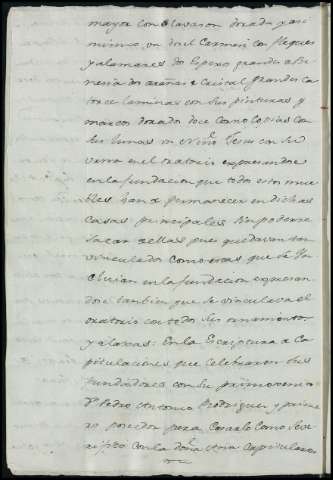 mayor con clavason dorada y asi
mismo un dosel Carmesi con flueques
y alamares dos Espejos grandes a la
nesia dos arañas de cristal grandes ca
torce laminas con sus pinturas y
marcos dorados doce cornucopias con
sus lunas un Niño Jesus con su
urna en el oratorio expresandose
en la fundacion que todos estos mue
bles han de permanecer en dichas
Casas principales sin poderse
sacar de ellas pues quedavan tan
vinculados como estas que se in
cluian en la fundacion expresan
dose tambien que se vinculava el
oratorio con todos sus ornamentos
y alajas: En la Escriptura de Ca
pitulaciones que celebraron los
fundadores con su primogenito
Dn Pedro Antonio Rodriguez y prime
ro poseedor para Casarlo como se ve
rifico con la Doña Ana Capitularon